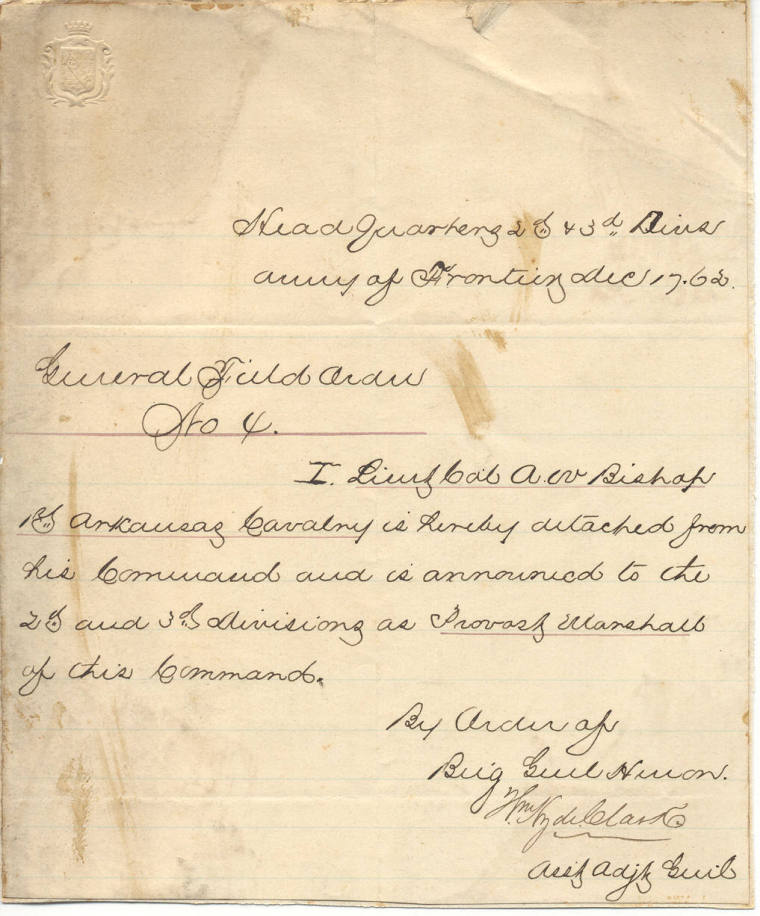 Head Quarters 2d & 3d Divs
Army of Frontier Dec 17. 62.
General Field Order
No 4.
I. Lieut Col A. W Bishop
1st Arkansas Cavalry is hereby detached from
his Command and is announced to the
2d and 3d Divisions as Provost Marshall
of this Command.
By Order of
Brig Genl Herron.
Wm Hyde Clark
Asst Adjt Genl